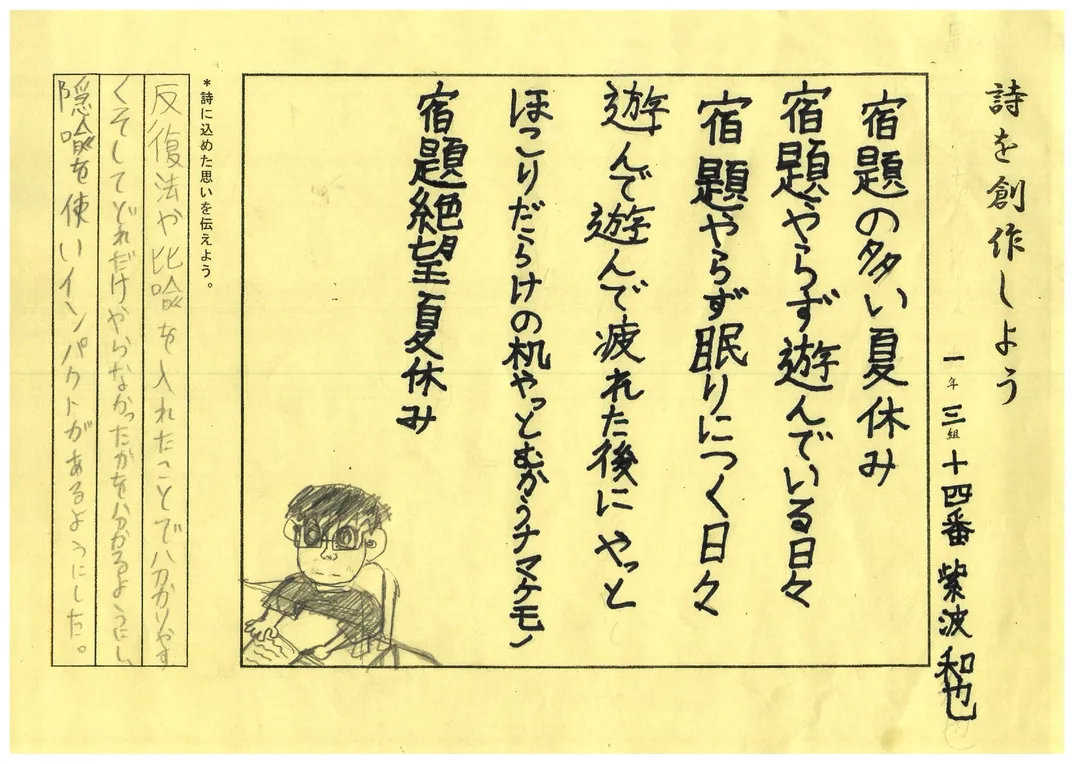 詩を創作しよう
一年 三組 十四番 紫波 和也
宿題の多い夏休み
宿題やらず遊んでいる日々
宿題やらず眠りにつく日々
遊んで遊んで疲れた後にやっと
ほこりだらけの机やっとむかうナマケモノ
宿題絶望夏休み
*詩に込めた思いを伝えよう。
反復法や比喩を入れたことで分かりやす
くそしてどれだけやらなかったかを分かるようにし、
隠喩を使いインパクトがあるようにした。